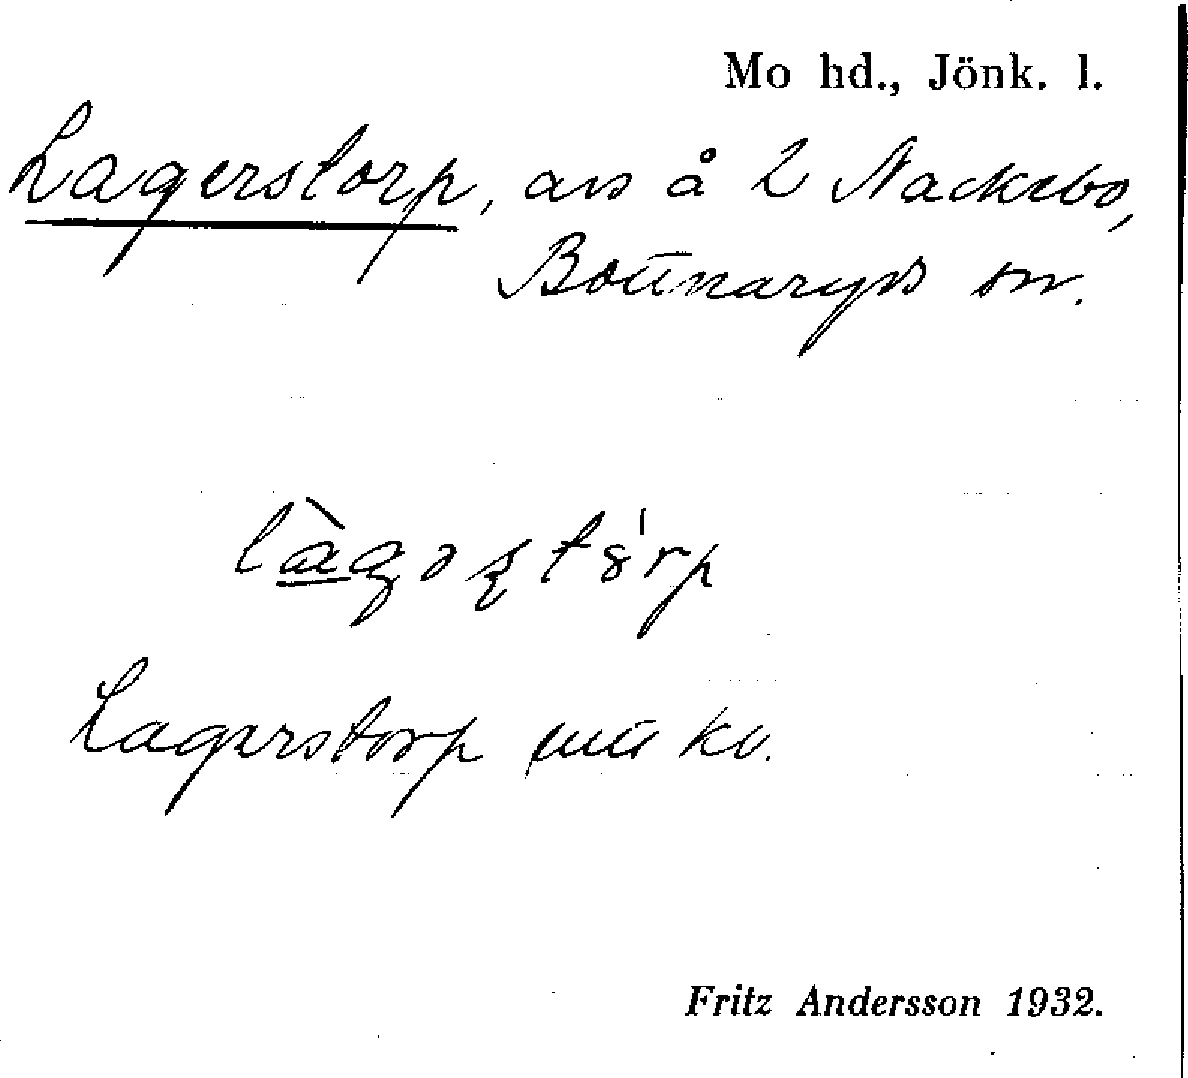 Mo hd., Jönk. l.
Lagerstorp, avs å 2 Nackebo,
Bottnaryds sn.
Lagerstorp kv.
Fritz Andersson 1932.